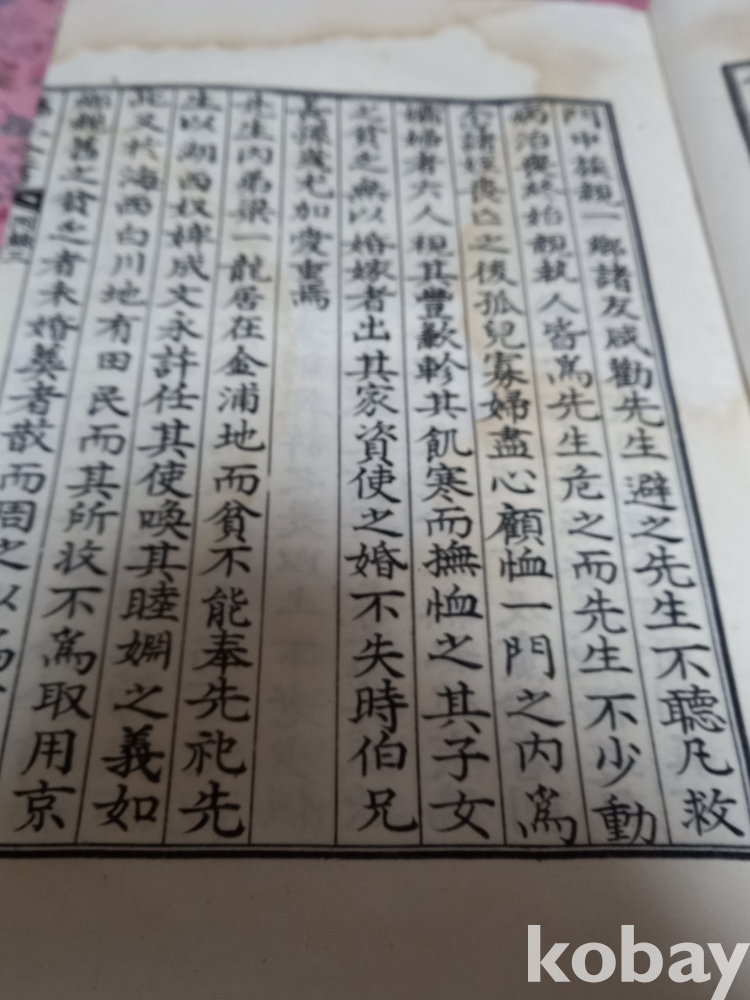 門中族親一鄕諸友咸勸先生避之先生不聽凡救
病治喪終始親執人皆爲先生危之而先生不少動
諸姪喪亡之後孤兒寡婦盡心顧恤一門之內爲
孀婦者六人視其豐歉軫其飢寒而撫恤之其子女
之貧乏無以婚嫁者出其家資使之婚不失時伯兄
長孫歲尤加愛重焉
先生內弟梁一龍居在金浦地而貧不能奉先祀先
生以湖西奴婢成文永許任其使喚其睦婣之義如
此又於海西白川地有田民而其所收不爲取用京
鄕親舊之貧乏者未婚葬者散而周之以爲
kobay